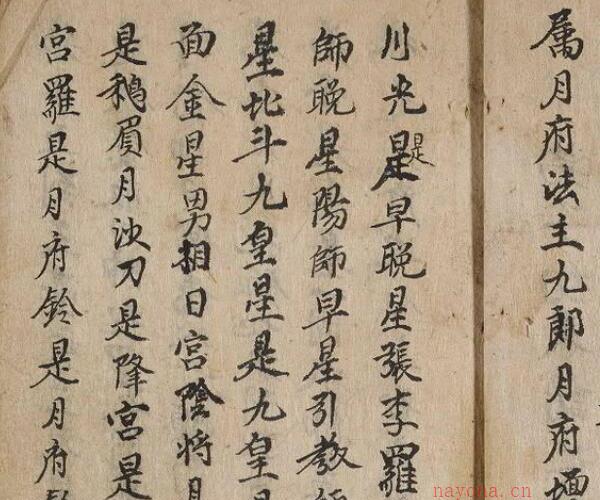 属月府法主九郎月府
川光是是早晚星張李羅
師晚星陽師早星引教師
星比斗九皇星是九皇星
面金星男相日宮陰將月
是鵝眉月沙刀是降宮是
宮羅是月府鈴是月府
nayona.cn